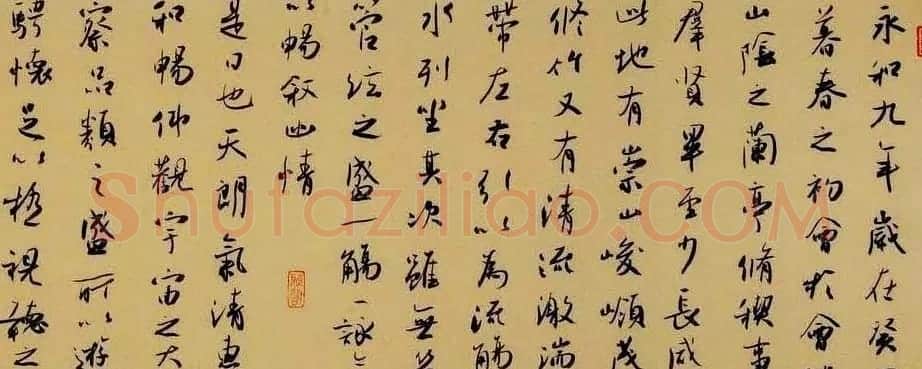 永和九年歲在癸
暮春之初會於會
山陰之蘭亭脩稧事
羣賢畢至少長咸
此地有崇山峻嶺茂
脩竹又有清流激湍
帶左右引以為流觴
水列坐其次雖無
管弦之盛一觴一詠
以暢敘幽情
是日也天朗氣清惠
和暢仰觀宇宙之大
察品類之盛所以遊
騁懷足以極視聽之
Shufaziliao.COM